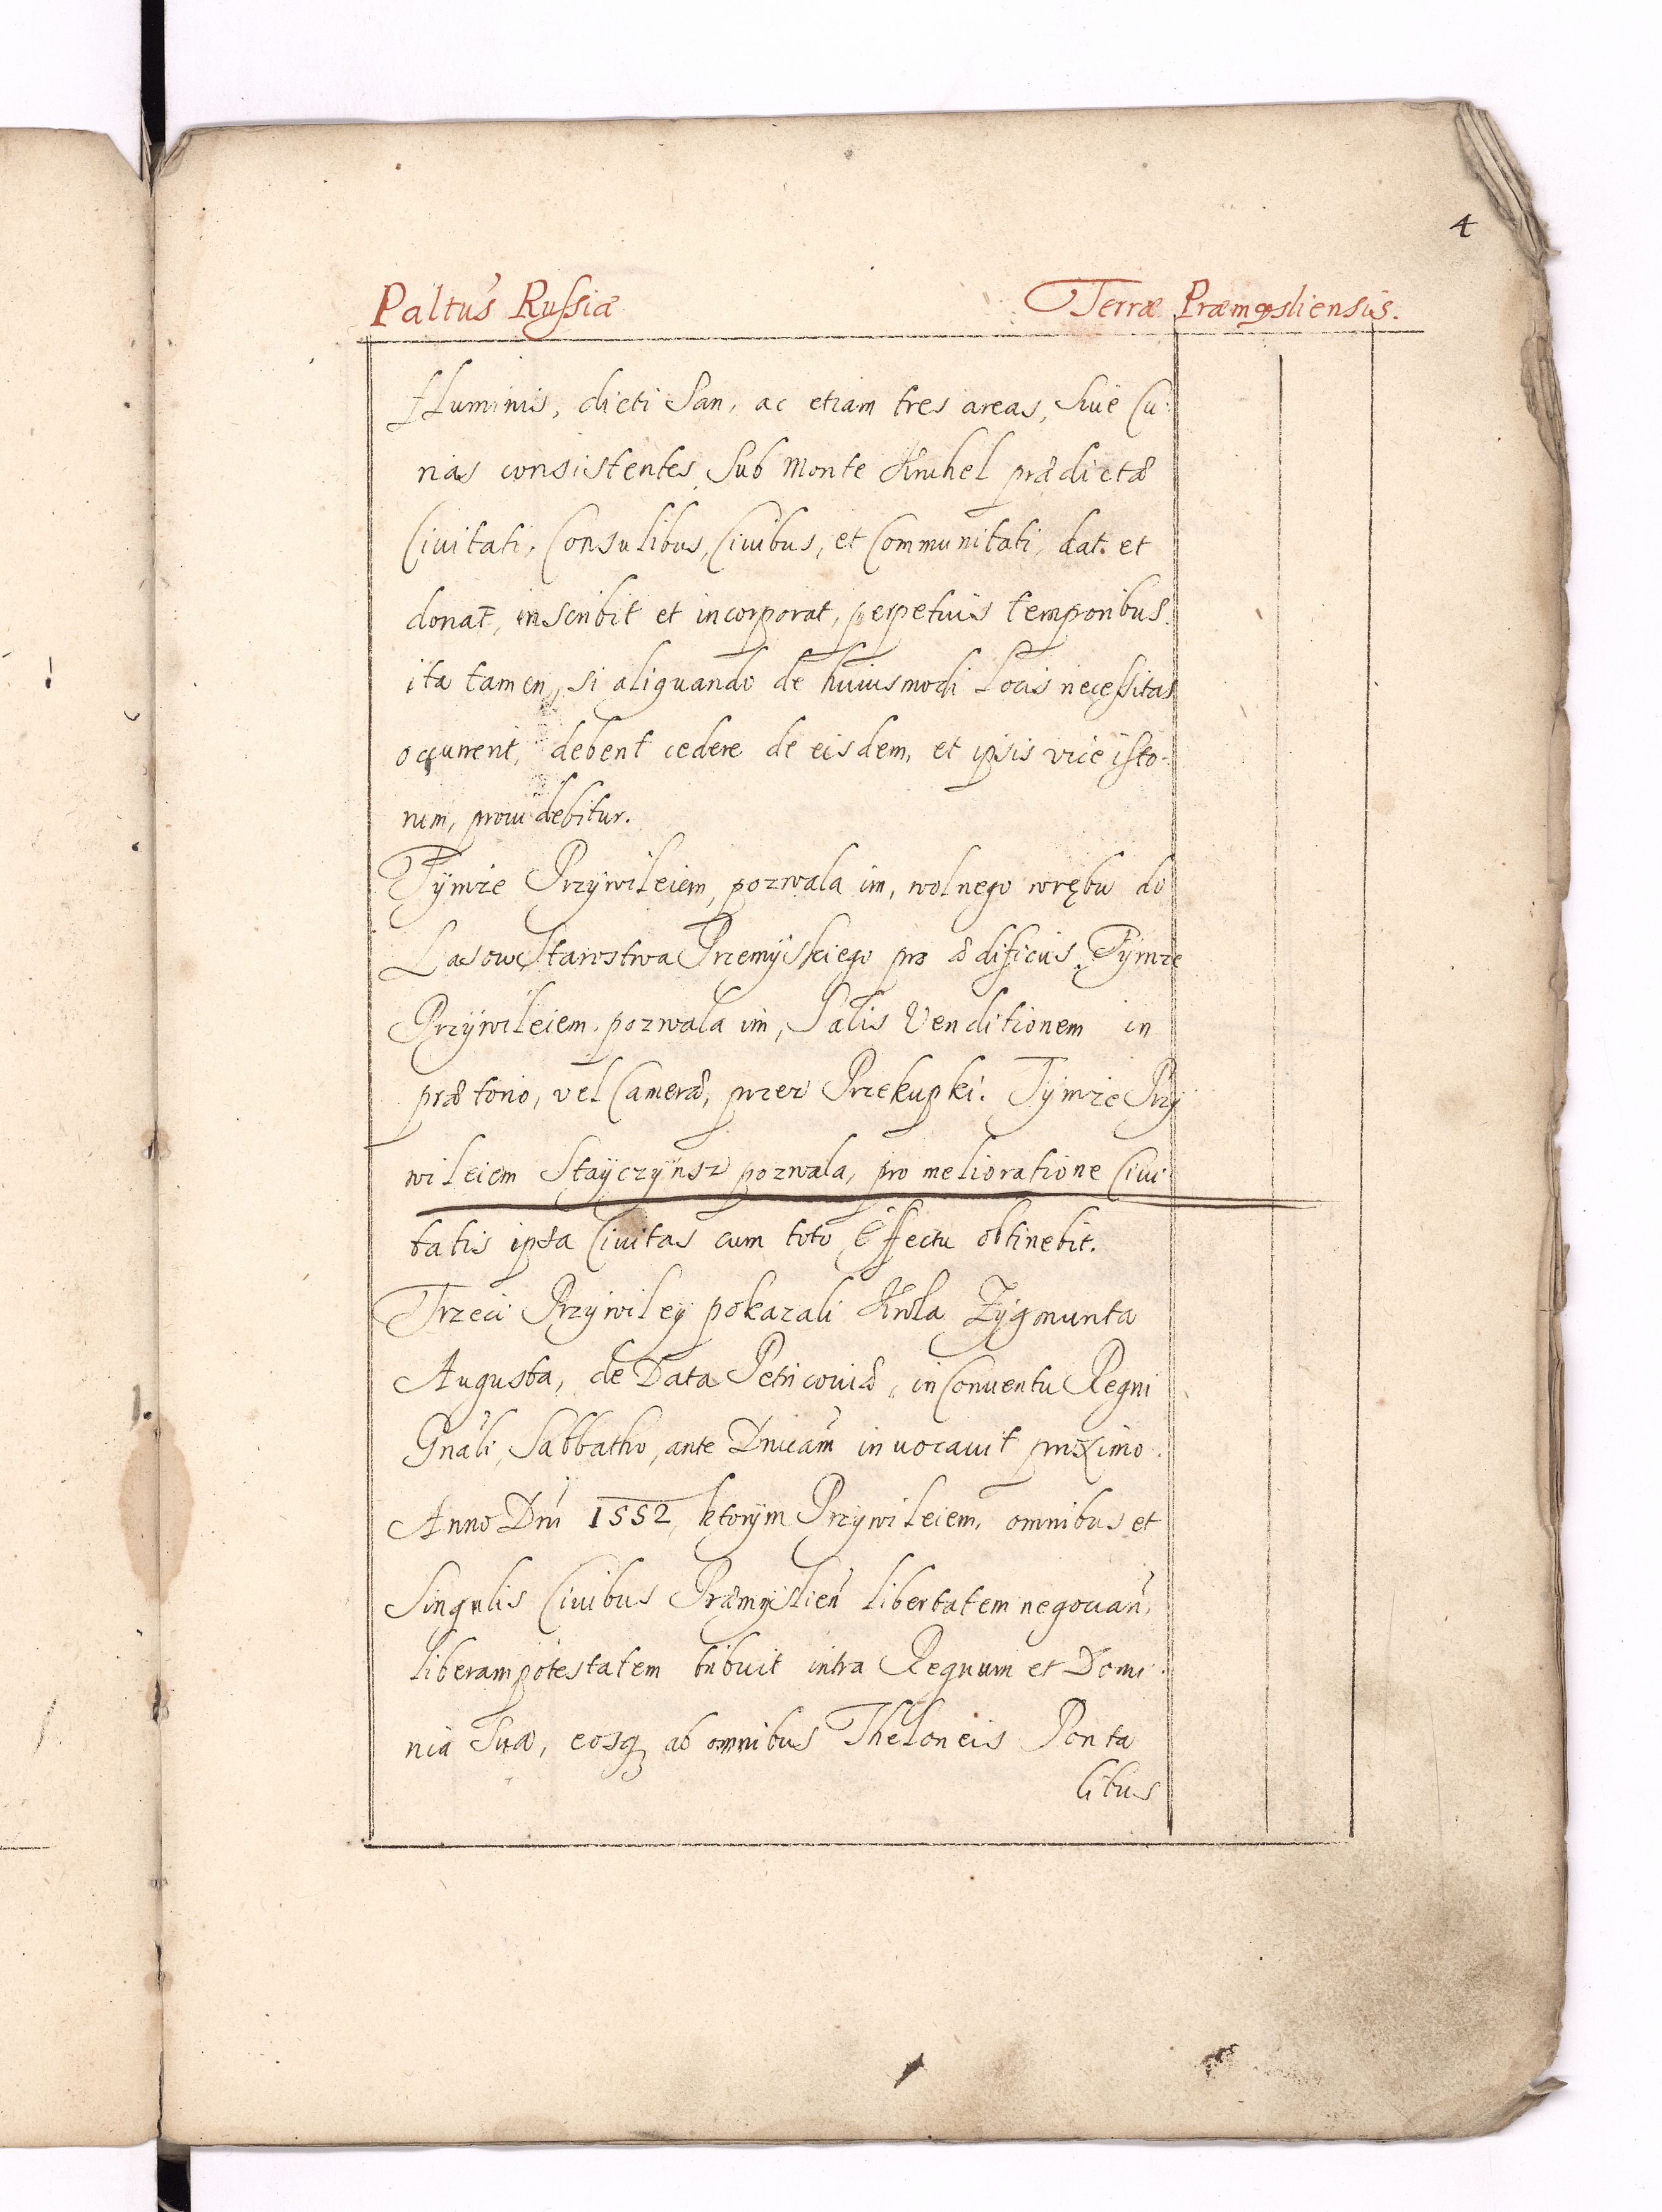 4
Paltus Russiæ Terræ Præmysliensis.
Fluminis, dicti San, ac etiam tres areas, Siue Cu-
rias consistentes, Sub Monte Kruhel prædictæ
Ciuitati, Consulibus, Ciuibus, et Communitati, dat. et
donat, inscribit et incorporat, perpetuis temporibus.
ita tamen, si aliquando de huiusmodi Locis necessitas
occurrerit, debent cedere de eisdem, et ipsis vice isto-
rum, prouidebitur.
Tÿmże Przÿwileiem, pozwala im, wolnego wrębu do
Lasow Starostwa Przemÿskiego pro ædificiis. Tÿmże
Przÿwileiem. pozwala im, Salis Venditionem in
prætorio, vel Camera, przez Przekupki. Tÿmże Przÿ
wileiem Staÿczÿnsz pozwala, pro melioratione Ciui-
tatis ipsa Ciuitas cum toto Effectu obtinebit.
Trzeci Przÿwileÿ pokazali Krola Zÿgmunta
Augusta, de Data Petricouiæ, in Conuentu Regni
Gnali, Sabbatho, ante Dnicam inuocauit proximo.
Anno Dni 1552, ktorÿm Przÿwileiem, omnibus et
Singulis Ciuibus Præmÿslien libertatem negocian,
liberam potestatem tribuit intra Regnum et Domi-
nia Sua, eosq ab omnibus Theloneis Ponta
libus